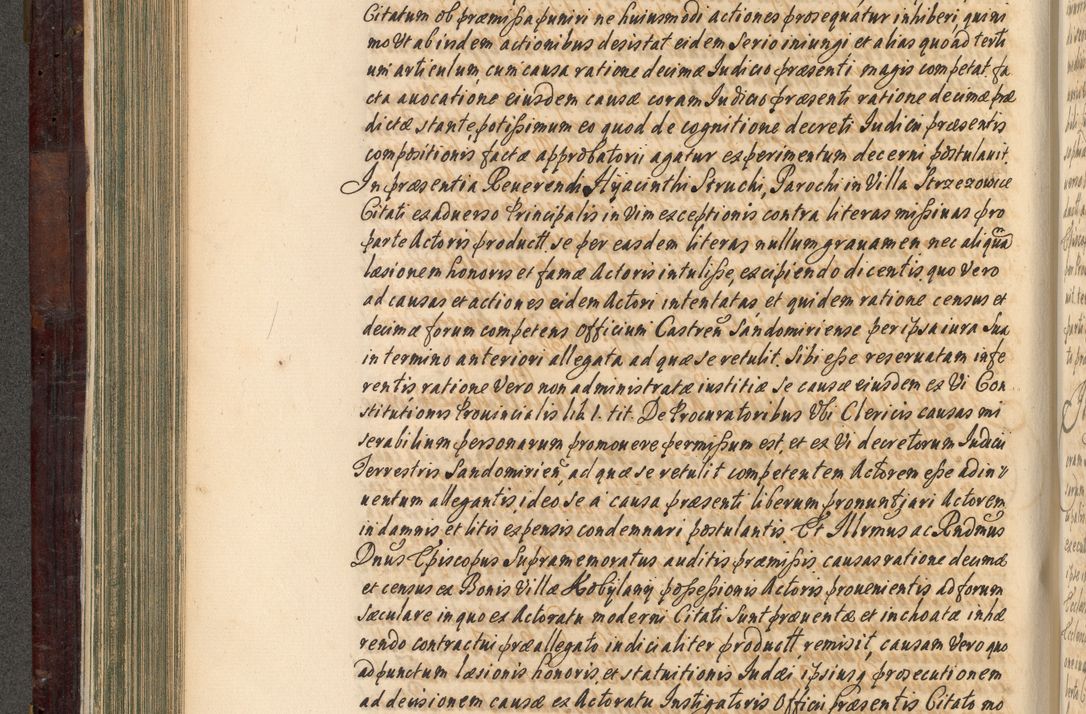 Citatum ob præmissa puniri ne huiusmodi actiones prosequatur inhiberi, quini
mo Ut ab iisdem actionibus desistat eidem serio iniungi et alias quoad terti
um articulum cum causa ratione decimæ Iudicio præsenti magis competat fa
cta auocatione eiusdem causæ coram Iudicio præsenti ratione decimæ præ
dictæ stante, potissimum eo quod de cognitione decreti Iudicii præsentis
compositionis factæ approbatorii agatur experimentum decerni postulauit.
In præsentia Reuerendi Hyacinthi Struchi, Parochi in Villa Strzezowice
Citati ex aduerso Principalis in Vim exceptionis contra literas missiuas pro
parte Actoris product. se per easdem literas nullum grauamen nec aliquā
læsionem honoris et famæ Actoris intulisse, excipiendo dicentis, quo Vero
ad causas et actiones eidem Actori intentatas et quidem ratione census et
decimæ forum competens officium Castren̄ Sandomiriense per ipsa iura sua
in termino anteriori allegata ad quæ se retulit. Sibi esse reseruatam infe
rentis ratione Vero non administratæ iustitiæ se causæ eiusdem ex Vi Con
stitutionis Prouincialis lib. 1. tit. De Procuratoribus Ubi Clericis causas mi
serabilium personarum promouere permissum est, et ex Vi decretorum Iudicii
Terrestris Sandomirien̄, ad quæ se retulit competentem Actorem esse ad in
uentum allegantis, ideo se a causa præsenti liberum pronuntjari Actorem
in damnis et litis expensis condemnari postulantis. Et Illrmus ac Rndmus
Dnus Episcopus supramemoratus auditis præmissis causas ratione decimæ
et census ex Bonis Villæ Kobylany possessionis Actoris prouenientis ad forum
sæculare in quo ex Actoratu moderni Citati sunt præuentæ et inchoatæ inhæ
rendo contractui præallegato iudicialiter product. remisit, causam Vero quo
ad punctum læsionis honoris, et statuitionis Iudæi ipsiusq prosecutionem
ad decisionem causæ ex Actoratu Instigatoris Officii præsentis Citato mo